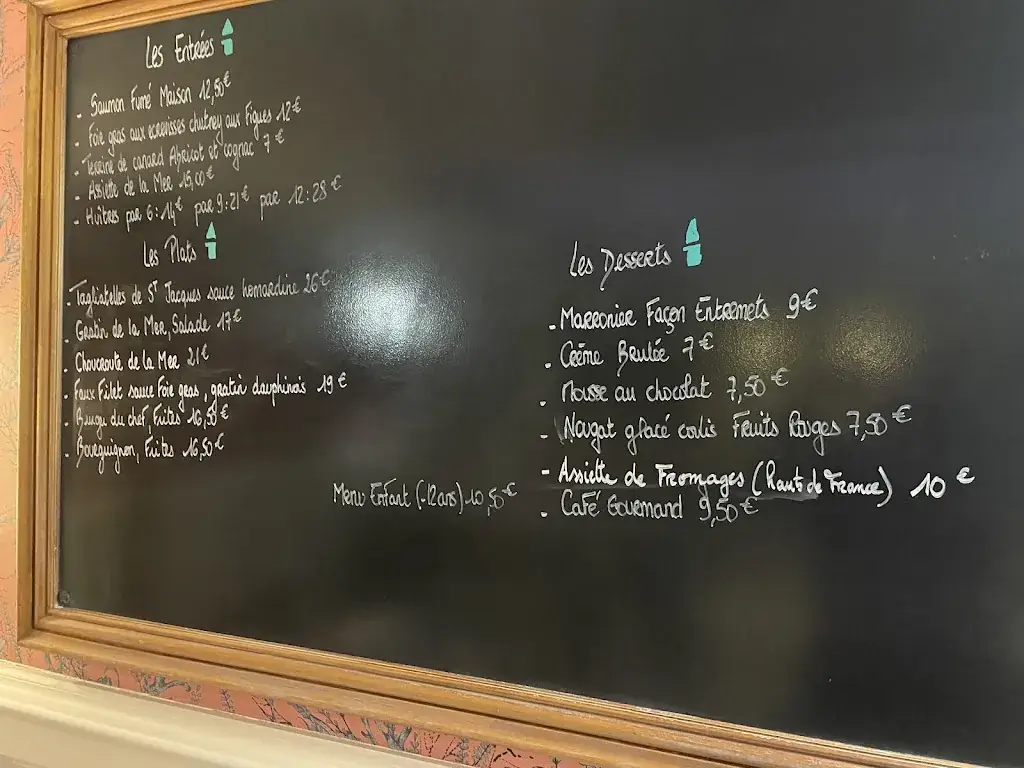 Les Entrées
- Saumon Fumé Maison 12,50€
- Foie gras aux ecrevisses chutney aux Figues 12€
- Terrine de canard Abricot et cognac 7€
- Assiette de la Mer 15,00€
- Huîtres par 6:14€ par 9:21€ par 12:28€
Les Plats
- Tagliatelles de St Jacques sauce homardine 26€
- Gratin de la Mer, Salade 17€
- Choucroute de la Mer 21€
- Faux Filet sauce Foie gras, gratin dauphinois 19€
- du chef, Frites 16,50€
- Frites 16,50€
Menu Enfant (-12ans) 10,50€
Les Desserts
- Marronier Façon Entremets 9€
- Crème Brulée 7€
- Mousse au chocolat 7,50€
- Nougat glacé coulis Fruits Rouges 7,50€
- Assiette de Fromages (hauts de France) 10€
- Café Gourmand 9,50€